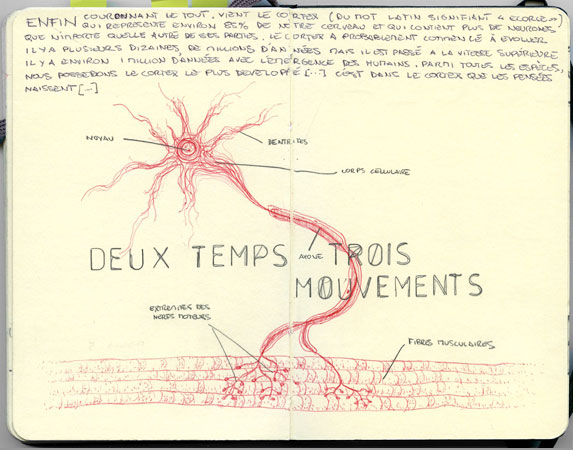 ENFIN COURONNANT LE TOUT, VIENT LE CORTEX (DU MOT LATIN SIGNIFIANT « ECORCE »)
QUI REPRESENTE ENVIRON 85% DE NOTRE CERVEAU ET QUI CONTIENT PLUS DE NEURONES
QUE N'IMPORTE QUELLE AUTRE DE SES PARTIES. LE CORTEX A PROBABLEMENT COMMENCÉ À EVOLUER
IL Y A PLUSIEURS DIZAINES DE MILLIONS D'ANNÉES MAIS IL EST PASSÉ A LA VITESSE SUPÉRIEURE
IL Y A ENVIRON 1 MILLION D'ANNÉES AVEC L'EMERGENCE DES HUMAINS. PARMI TOUTES LES ESPÈCES,
NOUS POSSEDONS LE CORTEX LE PLUS DEVELOPPÉ [...] C'EST DANS LE CORTEX QUE LES PENSÉES
NAISSENT [...]
NOYAU
DENTRITES
CORPS CELLULAIRE
AXONE
DEUX TEMPS TROIS
MOUVEMENTS
EXTREMITES DES
NERFS MOTEURS
FIBRES MUSCULAIRES